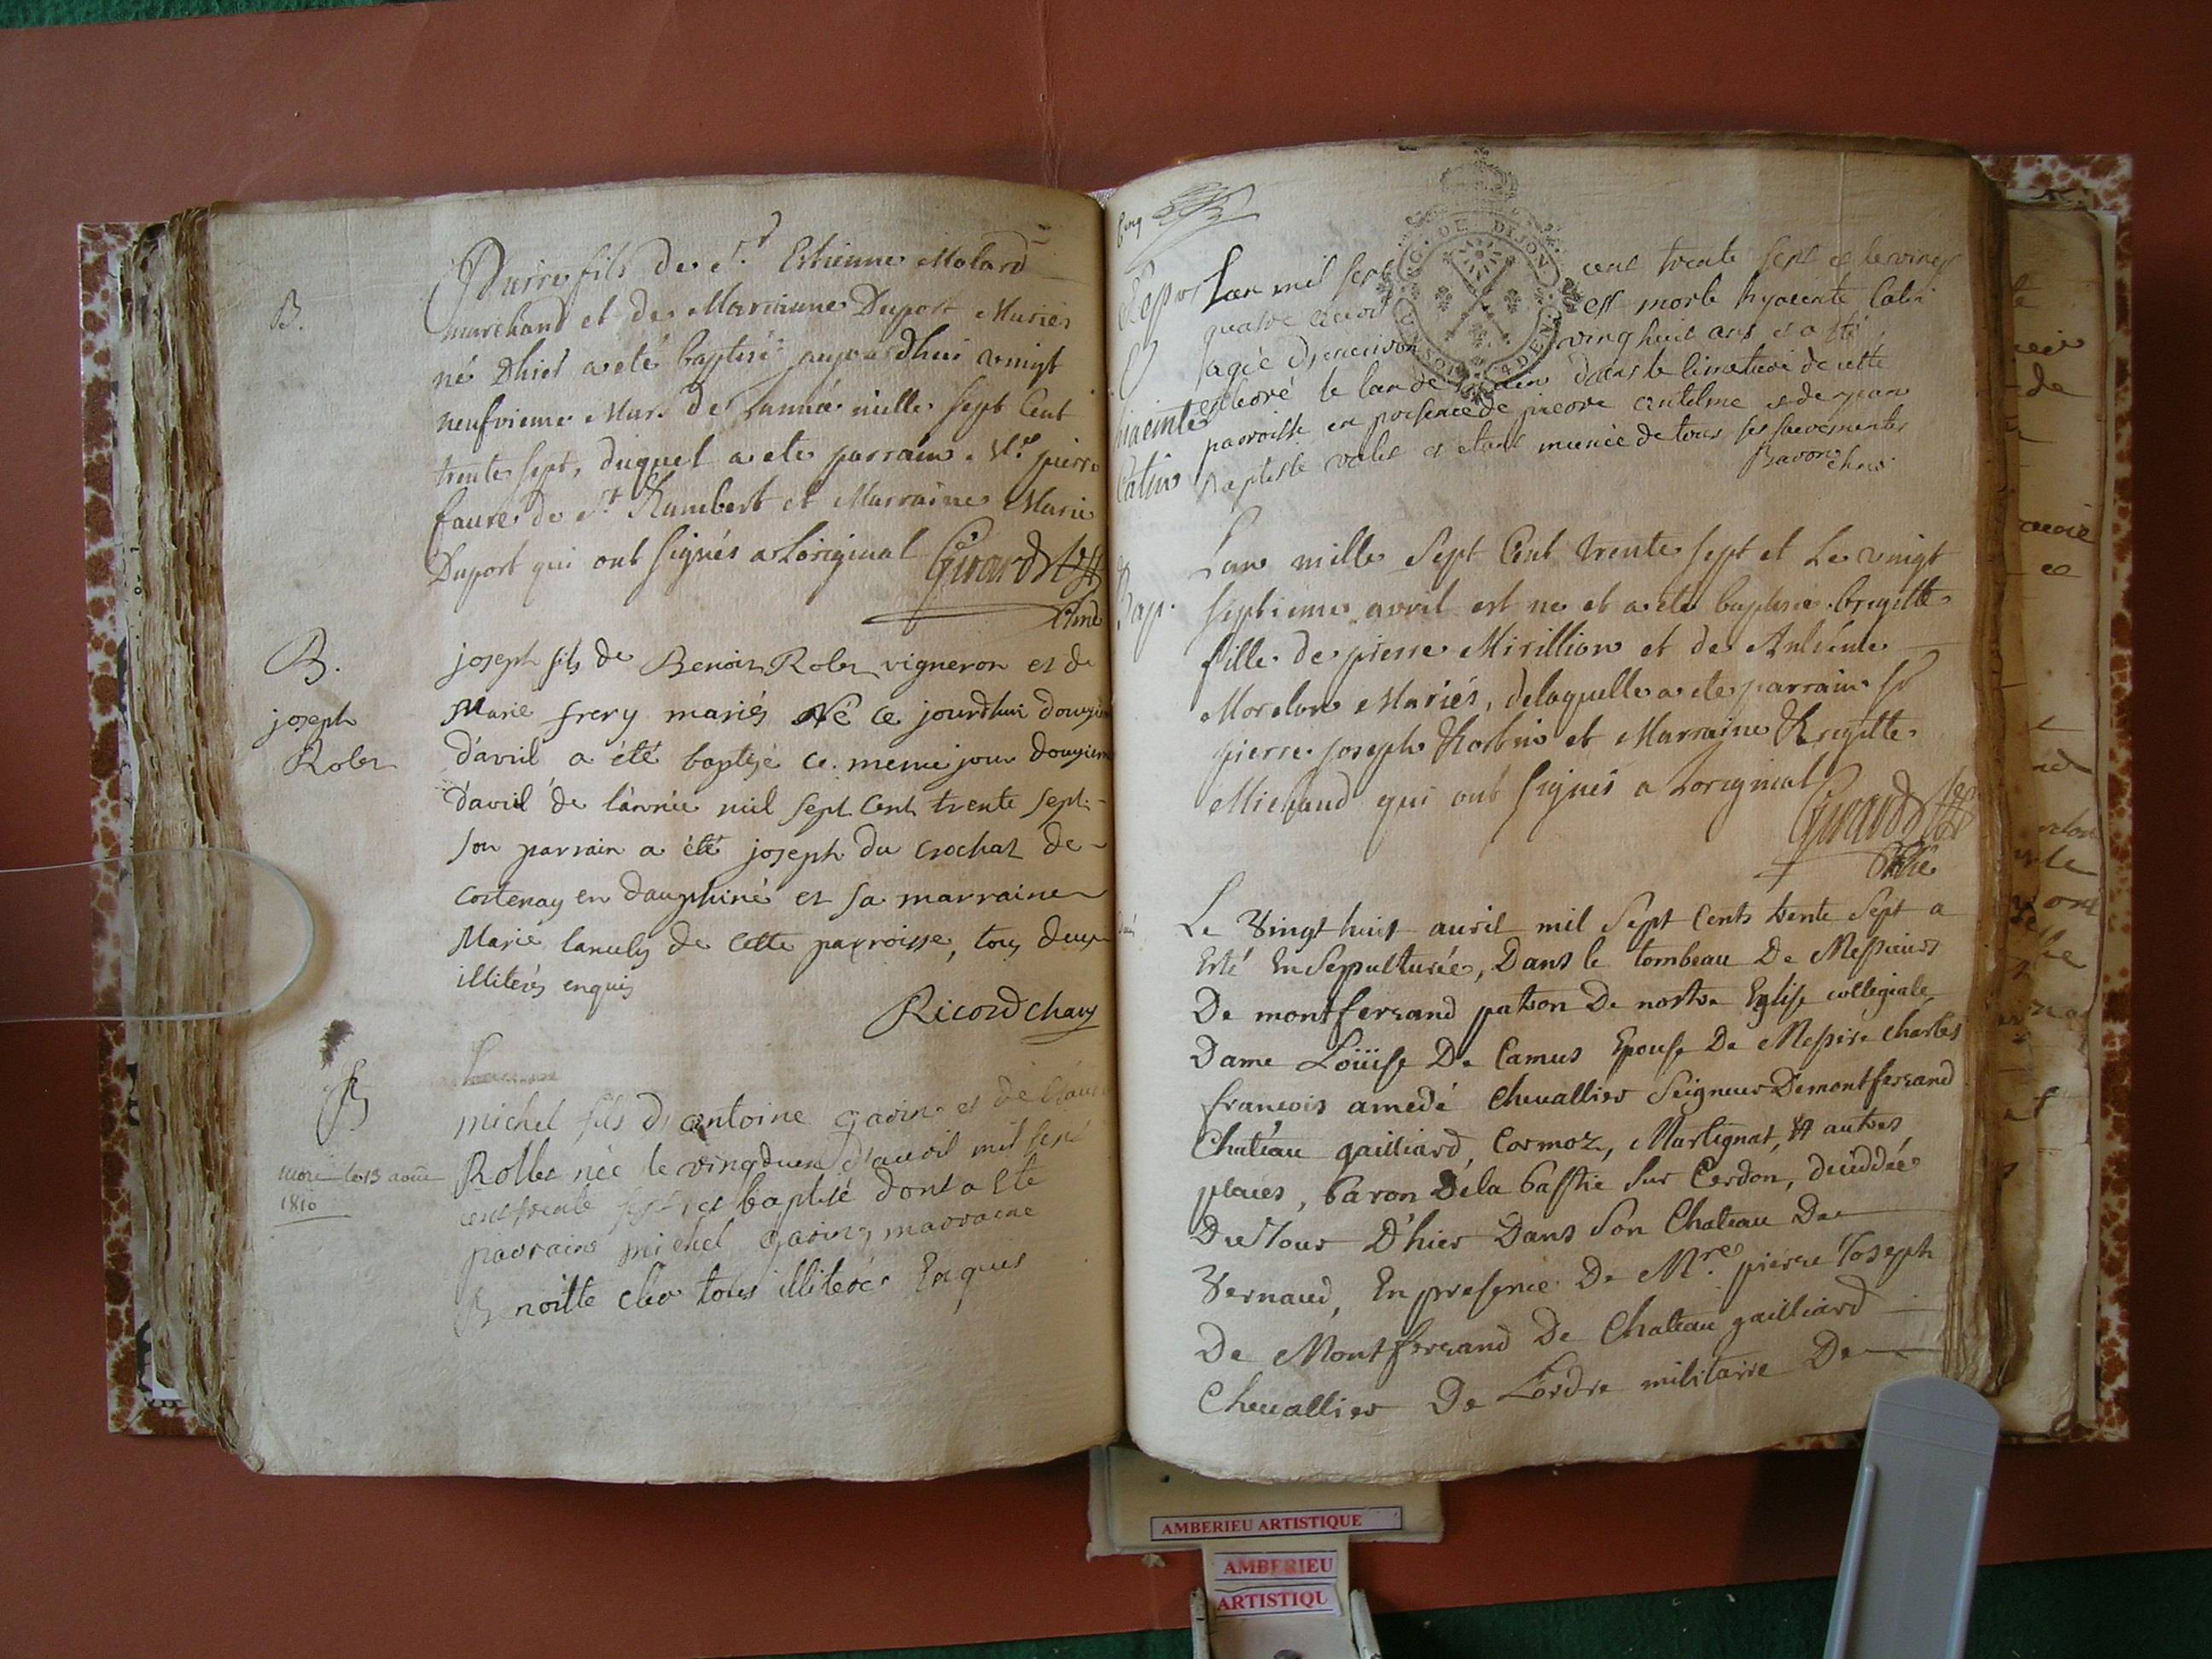 B.
Pierre fils de Sr. Estienne Molard
marchand et de Marianne Duport Mariés
né Dhier a eté baptisé aujourdhui vingt
neufvieme Mars de Lannée mille sept Cent
trente sept, duquel a ete parrain Sr. pierre
faure de St. Rambert et Marraine Marie
Duport qui ont signés a Loriginal Girard
B.
joseph
Rolet
joseph fils de Benoit Rolet vigneron et de
Marie frery mariés Né ce jourdhui douzieme
d'avril a été baptizé ce meme jour douzieme
d'avril de l'année mil sept cent trente sept.
son parrain a été joseph du crochat de
cortenay en dauphiné et sa marraine
Marie de cette parroisse, tous deux
illiterés enquis
Ricord
B
mort le 13 août
1810
michel fils d antoine garin et de
Rollet née le vingdeux d'avril mil sept
cent trente sept et baptisé dont a Eté
parrains michel garin, marraine
Benoitte tous illiteré Enquis
DE DIJON
hiacinte
Catin
Lan mil sept cent trente sept et le vingt
quatre est morte hyacente Catin
agée d'environ vinghuit ans et a été
enterré le lendemain dans le cimetiere de cette
parroisse en presence de pierre antelme et de jean
Baptiste et etant munie de tous ses sacrements
Bap.
Lan mille Sept Cent trente sept et Le vingt
septieme avril est ne et a ete baptisée brigitte
fille de pierre Mirillion et de
Morelon Mariés, delaquelle a ete parrain Sr
pierre joseph et Marraine Brigitte
qui ont signés a Loriginal
Girard
Le Vingt huit avril mil Sept Cents trente Sept a
Esté EnSepulturée, Dans le tombeau De Messieurs
De montferrand patron De nostre Eglise collegiale
Dame Loüise De Camus Epouse De Messire Charles
françois amedé Chevallier Seigneur Demontferrand
Château gailliard, Cormoz, Martignat, & autres
places, baron Dela bastie sur Cerdon, deceddée
Du Jour D'hier Dans Son Chateau De
Vernaud, En presence De Mre. pierre Joseph
De Montferrand De Chateau gailliard
Chevallier De L'ordre militaire De
AMBERIEU ARTISTIQUE
AMBERIEU
ARTISTIQU